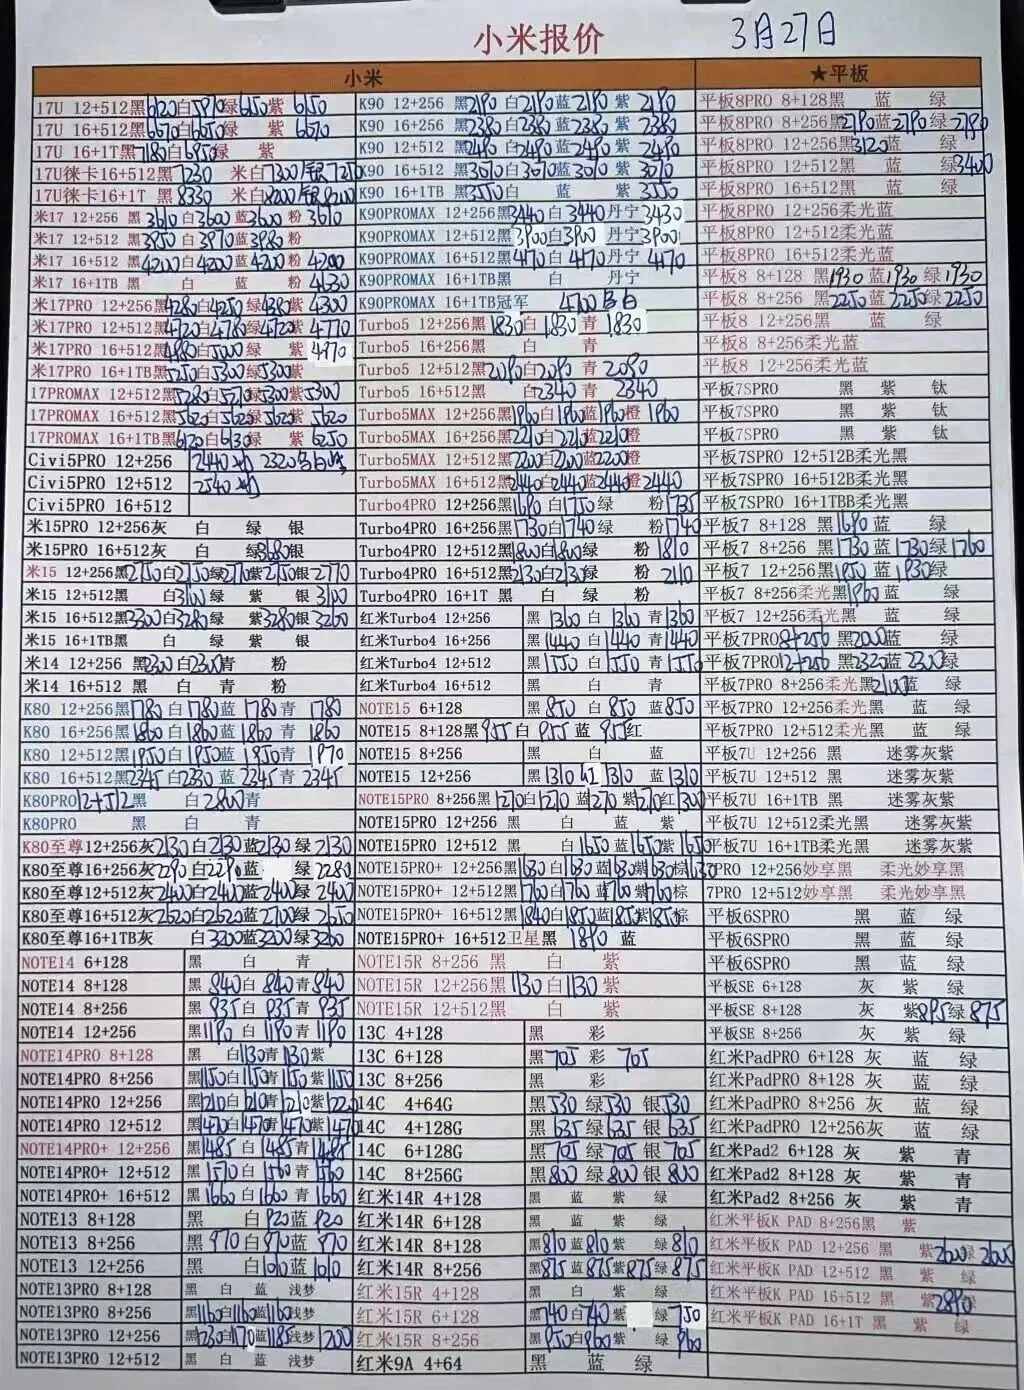 小米报价
3月27日
小米
★平板
17U 12+512黑6120白5970绿6150紫 6150
17U 16+512黑6670白6650绿 紫 6670
17U 16+1T黑7180白6950绿 紫
17U徕卡16+512黑 7230 米白7300/银7210
17U徕卡16+1T 黑 8330 米白8200/银8200
米17 12+256 黑 3610白3600蓝3600 粉 3610
米17 12+512 黑3950白3970蓝3980粉
米17 16+512 黑4200白4200蓝4200 粉 4200
米17 16+1TB黑 白 蓝 粉 4630
米17PRO 12+256黑4280白4250绿4380紫 4300
米17PRO 12+512黑4720白4760绿4720紫 4770
米17PRO 16+512黑4980白5000绿 紫 4970
米17PRO 16+1TB黑5250白5300绿5300紫
17PROMAX 12+512黑5280白5270绿5300紫5300
17PROMAX 16+512黑5620白5620绿5620紫 5620
17PROMAX 16+1TB黑6120白6130绿 紫 6250
Civi5PRO 12+256 2440 2320
Civi5PRO 12+512 2540
Civi5PRO 16+512
米15PRO 12+256灰 白 绿 银
米15PRO 16+512灰 白 绿3680银
米15 12+256黑2750白2750绿2770紫2750银2770
米15 12+512黑 白3100绿 紫 银3100
米15 16+512黑3300白3280绿 紫3280银3260
米15 16+1TB黑 白 绿 紫 银
米14 12+256 黑2300白2300青 粉
米14 16+512 黑 白 青 粉
K80 12+256黑1780白1780蓝 1780青 1780
K80 16+256黑1860白1860蓝 1860青 1860
K80 12+512黑1950白1950蓝 1950青 1970
K80 16+512黑2345白2330 蓝 2345青 2345
K80PRO12+512黑 白2800青
K80PRO 黑 白 青
K80至尊12+256灰2130白2130蓝2130 绿 2130
K80至尊16+256灰2290白2290蓝 绿 2280
K80至尊12+512灰2400白2400蓝2400绿 2400
K80至尊16+512灰2620白2620蓝2700绿 2650
K80至尊16+1TB灰 白3200蓝3200绿3260
NOTE14 6+128 黑 白 青
NOTE14 8+128 黑 840白 840青840
NOTE14 8+256 黑 935白 935青 935
NOTE14 12+256 黑1190白 1190青1190
NOTE14PRO 8+128 黑 白1130青1130紫
NOTE14PRO 8+256 黑1150白1150青1150紫1150
NOTE14PRO 12+256 黑1210白1210青1210紫1220
NOTE14PRO 12+512 黑1470白1470青1470紫1470
NOTE14PRO+ 12+256 黑1485白 1485青 1485
NOTE14PRO+ 12+512 黑 1570白 1560青 1560
NOTE14PRO+ 16+512 黑1660白1660 青 1660
NOTE13 8+128 黑 白920蓝 920
NOTE13 8+256 黑 970白970蓝 970
NOTE13 12+256 黑 白1010蓝1010
NOTE13PRO 8+128 黑 白 蓝 浅梦
NOTE13PRO 8+256 黑1160白1160蓝1160浅梦
NOTE13PRO 12+256 黑1230白1170蓝1185浅梦1200
NOTE13PRO 12+512 黑 白 蓝 浅梦
K90 12+256 黑2190 白2190蓝2190 紫 2190
K90 16+256 黑2380白2380蓝2380 紫 2380
K90 12+512 黑2490白2490蓝2490紫 2490
K90 16+512 黑3010白3010蓝3010紫 3010
K90 16+1TB黑3550白 蓝 紫 3550
K90PROMAX 12+256黑3440白 3440丹宁3430
K90PROMAX 12+512黑3900白3900 丹宁3900
K90PROMAX 16+512黑4170 白 4170丹宁 4170
K90PROMAX 16+1TB黑 白 丹宁
K90PROMAX 16+1TB冠军 4700
Turbo5 12+256黑1830白 1830 青 1830
Turbo5 16+256黑 白 青
Turbo5 12+512黑2080白2080 青 2080
Turbo5 16+512黑 白2340 青 2340
Turbo5MAX 12+256黑1960白1960蓝1960橙 1960
Turbo5MAX 16+256黑2210白2210蓝2210橙
Turbo5MAX 12+512黑2200白2200蓝2200橙
Turbo5MAX 16+512黑2440白2440蓝2440橙2440
Turbo4PRO 12+256黑1690白1750绿 粉1735
Turbo4PRO 16+256黑1730白1740绿 粉1740
Turbo4PRO 12+512黑1800白1800绿 粉 1810
Turbo4PRO 16+512黑2130白2130绿 粉 2110
Turbo4PRO 16+1T 黑 白 绿 粉
红米Turbo4 12+256 黑 1360 白 1360 青1360
红米Turbo4 16+256 黑1440白 1440 青1440
红米Turbo4 12+512 黑1550白 1550 青1550
红米Turbo4 16+512 黑 白 青
NOTE15 6+128 黑 850 白 850 蓝850
NOTE15 8+128黑955白 955 蓝 955红
NOTE15 8+256 黑 白 蓝
NOTE15 12+256 黑1310 红 1310 蓝1310
NOTE15PRO 8+256黑1270白1270 蓝1270 紫1270红1300
NOTE15PRO 12+256 黑 白 蓝 紫
NOTE15PRO 12+512 黑 白 1650蓝1650紫1650
NOTE15PRO+ 12+256黑1630白1630蓝1630紫1630棕1630
NOTE15PRO+ 12+512黑1760白1760 蓝1760紫1760棕
NOTE15PRO+ 16+512黑1840白1850蓝1850紫1850棕
NOTE15PRO+ 16+512卫星黑 1890 蓝
NOTE15R 8+256 黑 白 紫
NOTE15R 12+256黑1130白1130 紫
NOTE15R 12+512黑 白 紫
13C 4+128 黑 彩
13C 6+128 黑705 彩 705
13C 8+256 黑 彩
14C 4+64G 黑530 绿530 银530
14C 4+128G 黑635绿635 银635
14C 6+128G 黑705 绿705 银705
14C 8+256G 黑800 绿800 银800
红米14R 4+128 黑 蓝 紫 绿
红米14R 6+128 黑 蓝 紫 绿
红米14R 8+128 黑810蓝810紫 绿810
红米14R 8+256 黑875蓝875紫875绿 875
红米15R 4+128 黑 白 紫 绿
红米15R 6+128 黑740白740紫 绿 750
红米15R 8+256 黑950白960紫 绿 960
红米9A 4+64 黑 蓝 绿
平板8PRO 8+128黑 蓝 绿
平板8PRO 8+256黑2790蓝2790绿2790
平板8PRO 12+256黑3120蓝 绿
平板8PRO 12+512黑 蓝 绿3400
平板8PRO 16+512黑 蓝 绿
平板8PRO 12+256柔光蓝
平板8PRO 12+512柔光蓝
平板8PRO 16+512柔光蓝
平板8 8+128 黑1930 蓝1930 绿1930
平板8 8+256 黑2250蓝2250绿2250
平板8 12+256黑 蓝 绿
平板8 8+256柔光蓝
平板8 12+256柔光蓝
平板7SPRO 黑 紫 钛
平板7SPRO 黑 紫 钛
平板7SPRO 黑 紫 钛
平板7SPRO 12+512B柔光黑
平板7SPRO 16+512B柔光黑
平板7SPRO 16+1TBB柔光黑
平板7 8+128 黑1690蓝 绿
平板7 8+256 黑1730 蓝 1730绿1760
平板7 12+256黑1950蓝 1930绿
平板7 8+256柔光黑1960蓝 绿
平板7 12+256柔光黑 蓝 绿
平板7PRO8+256 黑2000蓝 绿
平板7PRO12+256 黑2320蓝2300绿
平板7PRO 8+256柔光黑2100蓝 绿
平板7PRO 12+256柔光黑 蓝 绿
平板7PRO 12+512柔光黑 蓝 绿
平板7U 12+256 黑 迷雾灰紫
平板7U 12+512 黑 迷雾灰紫
平板7U 16+1TB 黑 迷雾灰紫
平板7U 12+512柔光黑 迷雾灰紫
平板7U 16+1TB柔光黑 迷雾灰紫
7PRO 12+256妙享黑 柔光妙享黑
7PRO 12+512妙享黑 柔光妙享黑
平板6SPRO 黑 蓝 绿
平板6SPRO 黑 蓝 绿
平板6SPRO 黑 蓝 绿
平板SE 6+128 灰 紫 绿
平板SE 8+128 灰 紫895绿 875
平板SE 8+256 灰 紫 绿
红米PadPRO 6+128 灰 蓝 绿
红米PadPRO 8+128 灰 蓝 绿
红米PadPRO 8+256 灰 蓝 绿
红米PadPRO 12+256灰 蓝 绿
红米Pad2 6+128 灰 紫 青
红米Pad2 8+128 灰 紫 青
红米Pad2 8+256 灰 紫 青
红米平板K PAD 8+256黑 紫
红米平板K PAD 12+256 黑 紫2600绿 2600
红米平板K PAD 12+512 黑 紫 绿
红米平板K PAD 16+512 黑 紫2890绿
红米平板K PAD 16+1T 黑 紫 绿